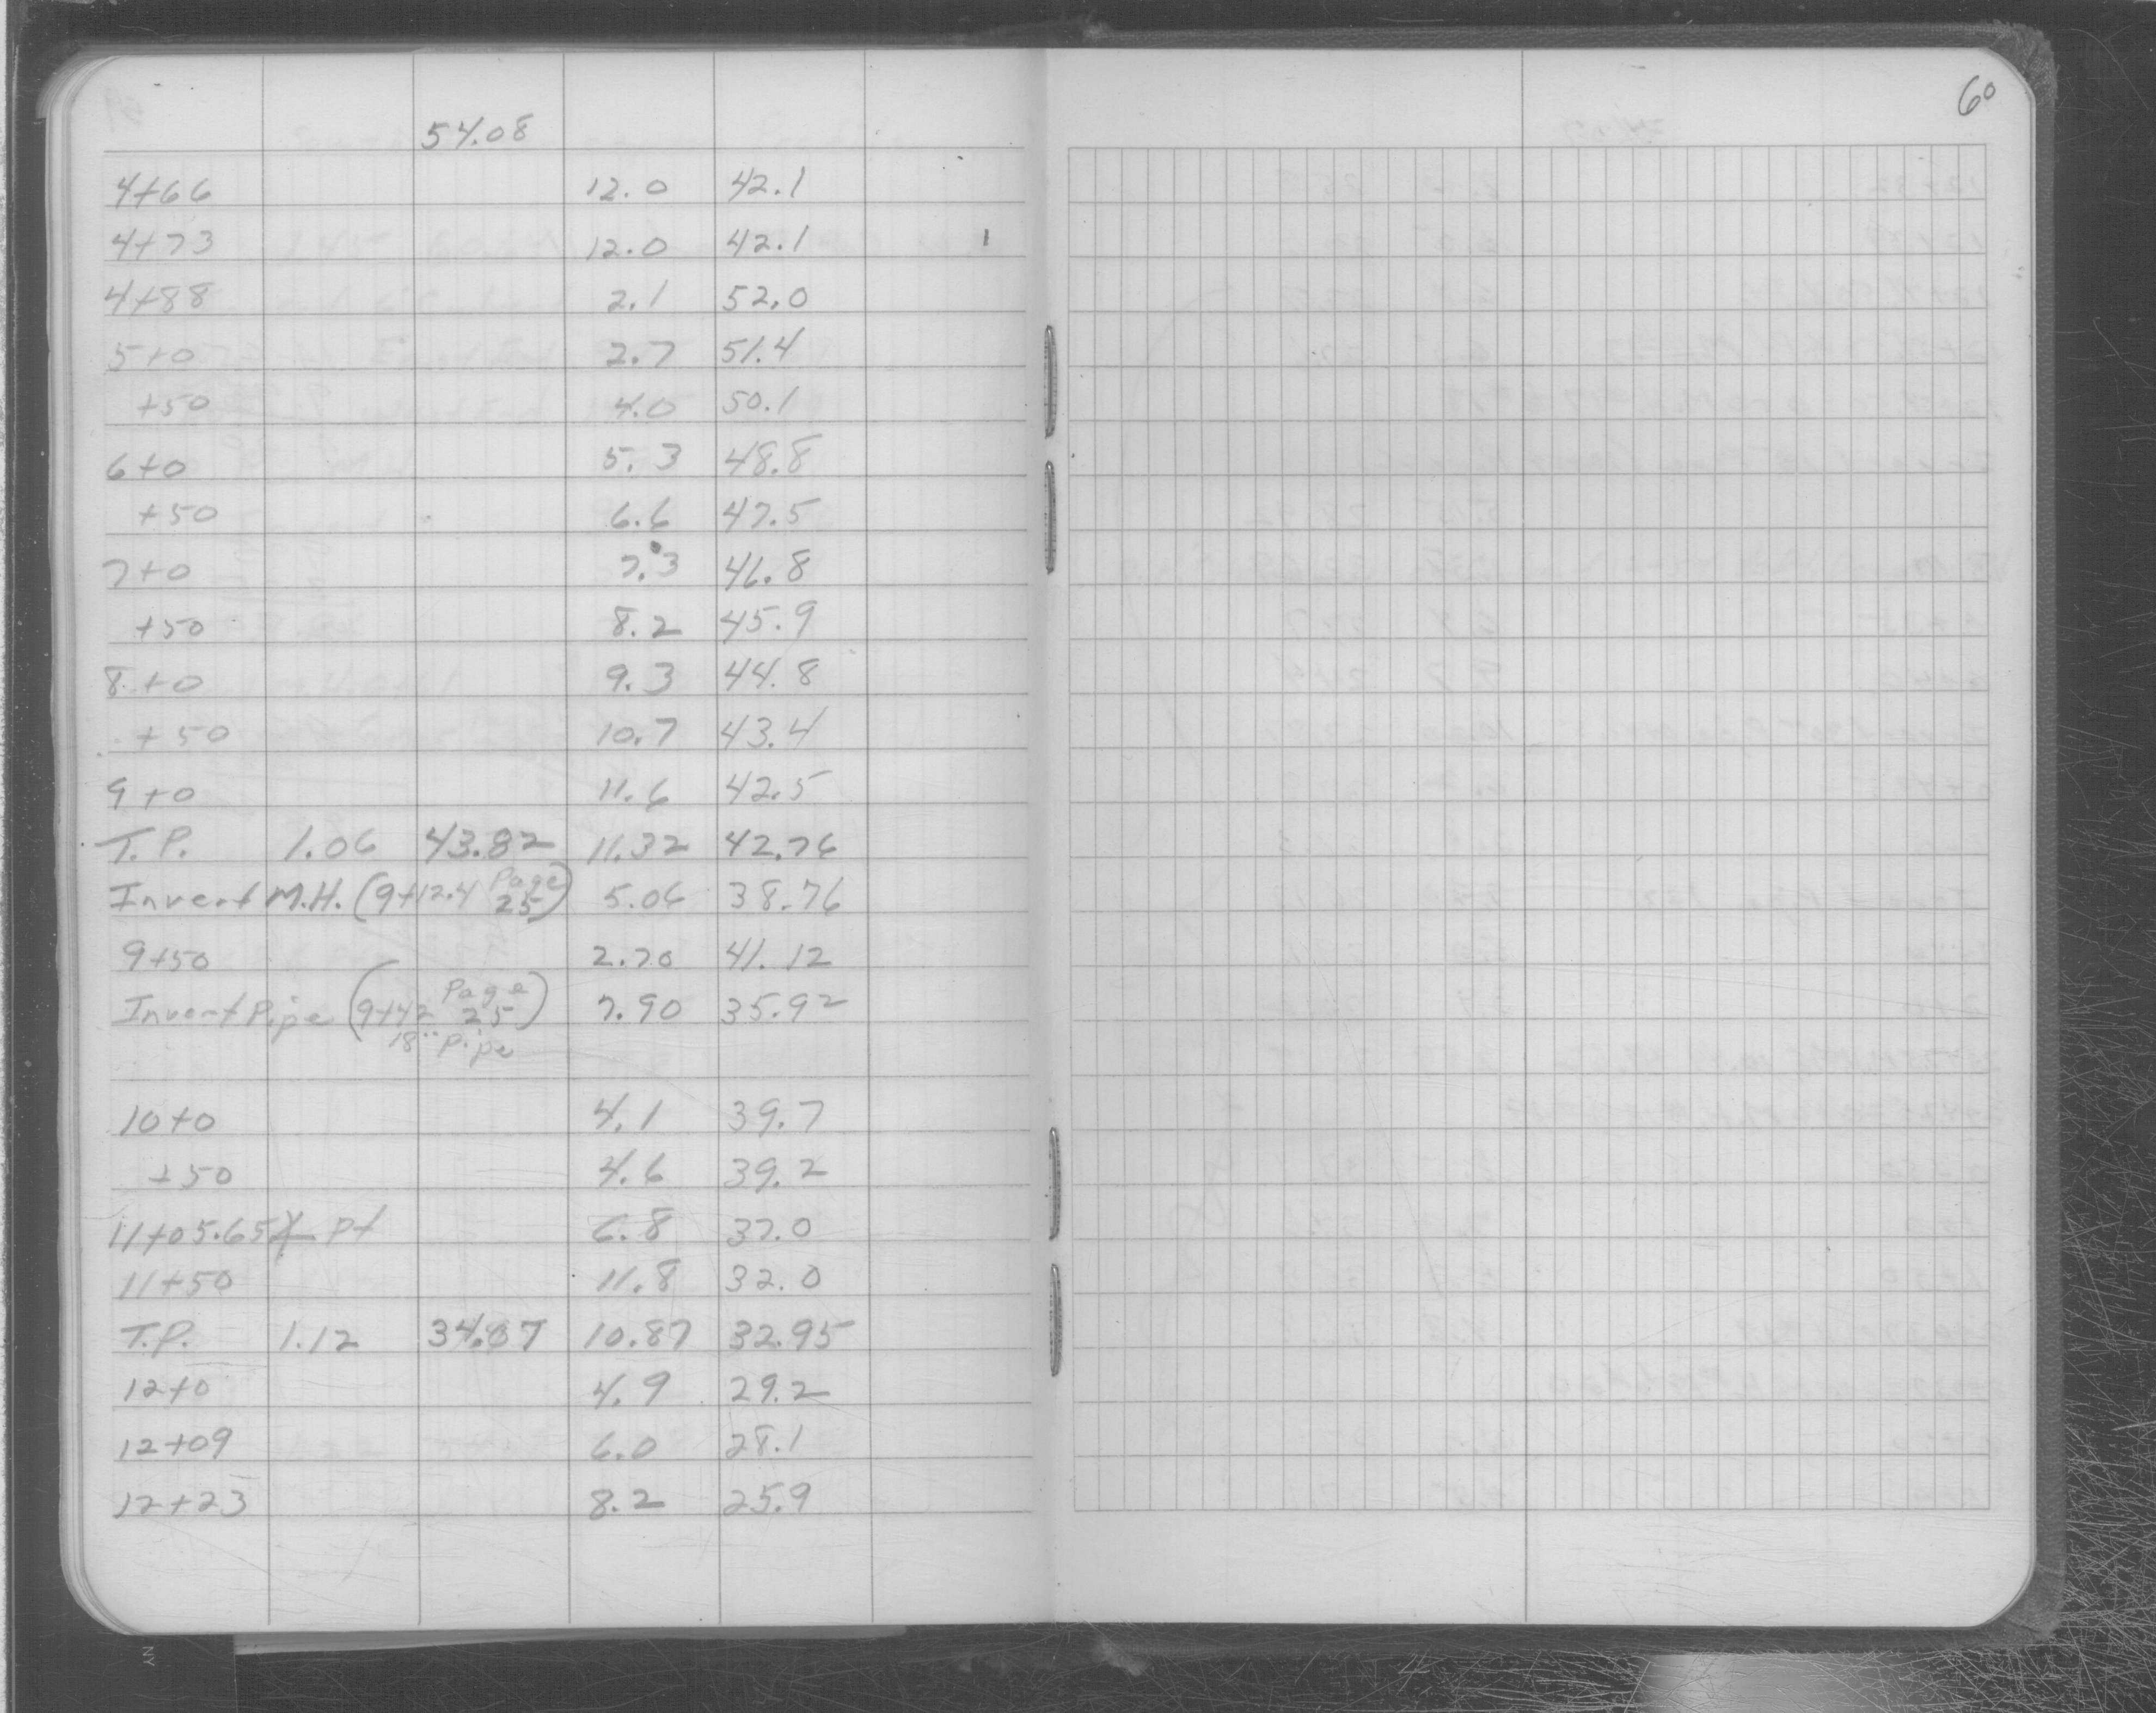 60
54.08
4+66 12.0 42.1
4+73 12.0 42.1
4+88 2.1 52.0
5+0 2.7 51.4
+50 4.0 50.1
6+0 5.3 48.8
+50 6.6 47.5
7+0 7.3 46.8
+50 8.2 45.9
8+0 9.3 44.8
+50 10.7 43.4
9+0 11.6 42.5
T.P. 1.06 43.82 11.32 42.76
Invert M.H. (9+12.4 Page 25) 5.06 38.76
9+50 2.70 41.12
Invert Pipe (9+42 Page 25) 7.90 35.92
18" Pipe
10+0 4.1 39.7
+50 4.6 39.2
11+05.65 Pt 6.8 37.0
11+50 11.8 32.0
T.P. 1.12 34.07 10.87 32.95
12+0 4.9 29.2
12+09 6.0 28.1
12+23 8.2 25.9
NY